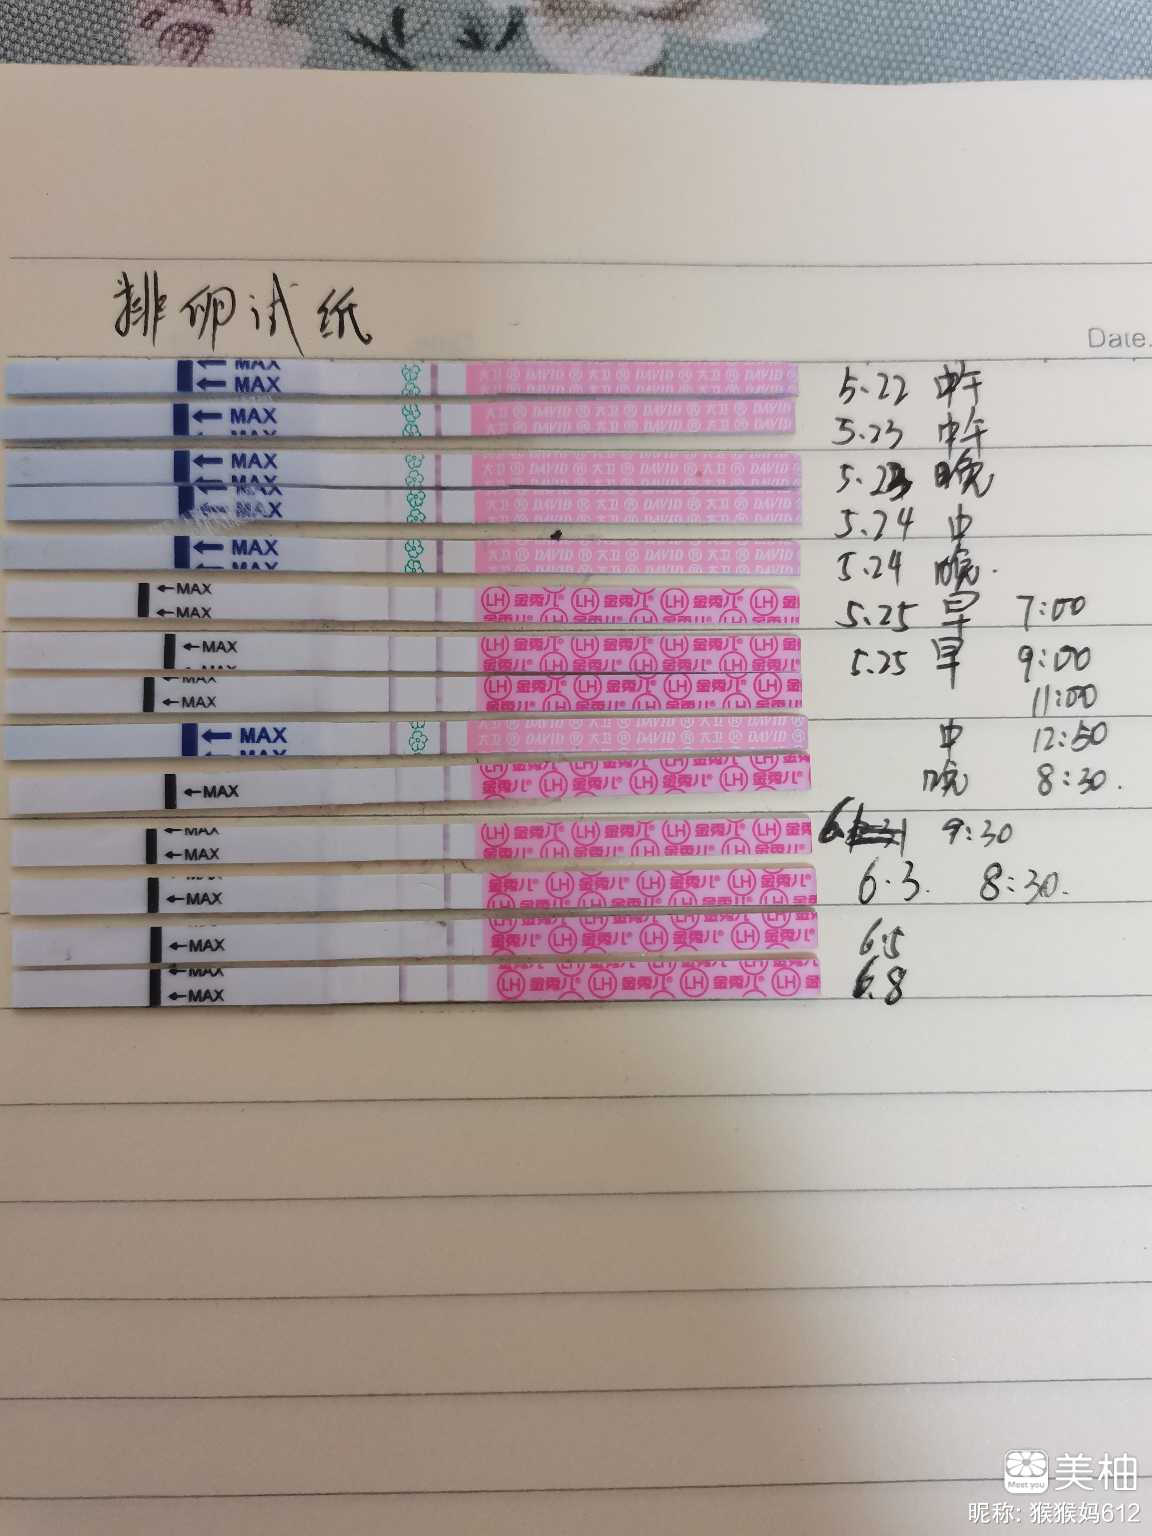 排卵试纸
Date.
MAX
MAX
大卫 ® DAVID 大卫 ® DAVID 大卫 ® DAVID
5.22 中午
MAX
大卫 ® DAVID 大卫 ® DAVID 大卫 ® DAVID
5.23 中午
MAX
大卫 ® DAVID 大卫 ® DAVID 大卫 ® DAVID
5.23 晚
MAX
大卫 ® DAVID 大卫 ® DAVID 大卫 ® DAVID
5.24 中
MAX
大卫 ® DAVID 大卫 ® DAVID 大卫 ® DAVID
5.24 晚.
←MAX
←MAX
LH 金秀儿® LH 金秀儿® LH 金秀儿® LH
5.25 早 7:00
←MAX
金秀儿® LH 金秀儿® LH 金秀儿® LH 金秀儿
5.25 早 9:00
MAX
←MAX
LH 金秀儿® LH 金秀儿® LH 金秀儿® LH
11:00
MAX
MAX
大卫 ® DAVID 大卫 ® DAVID 大卫 ® DAVID
中 12:50
←MAX
LH 金秀儿® LH 金秀儿® LH 金秀儿®
晚 8:30.
MAX
←MAX
LH 金秀儿® LH 金秀儿® LH 金秀儿® LH
6.1 9:30
←MAX
金秀儿® LH 金秀儿® LH 金秀儿® LH 金秀儿
6.3. 8:30.
←MAX
LH 金秀儿® LH 金秀儿® LH 金秀儿®
6.5
MAX
←MAX
LH 金秀儿® LH 金秀儿® LH 金秀儿® LH
6.8
美柚
Meet you
昵称: 猴猴妈612